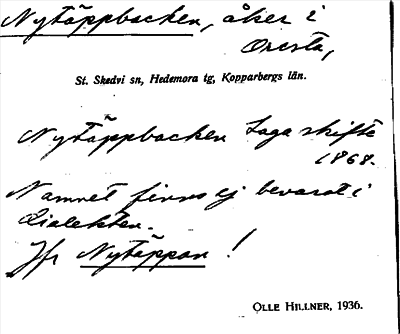 Nytäppbacken, åker i
Oresta,
St. Skedvi sn, Hedemora tg, Kopparbergs län.
Nytäppbacken Laga skifte
1868.
Namnet finns ej bevarat i
dialekten.
Jfr Nytäppan !
OLLE HILLNER, 1936.